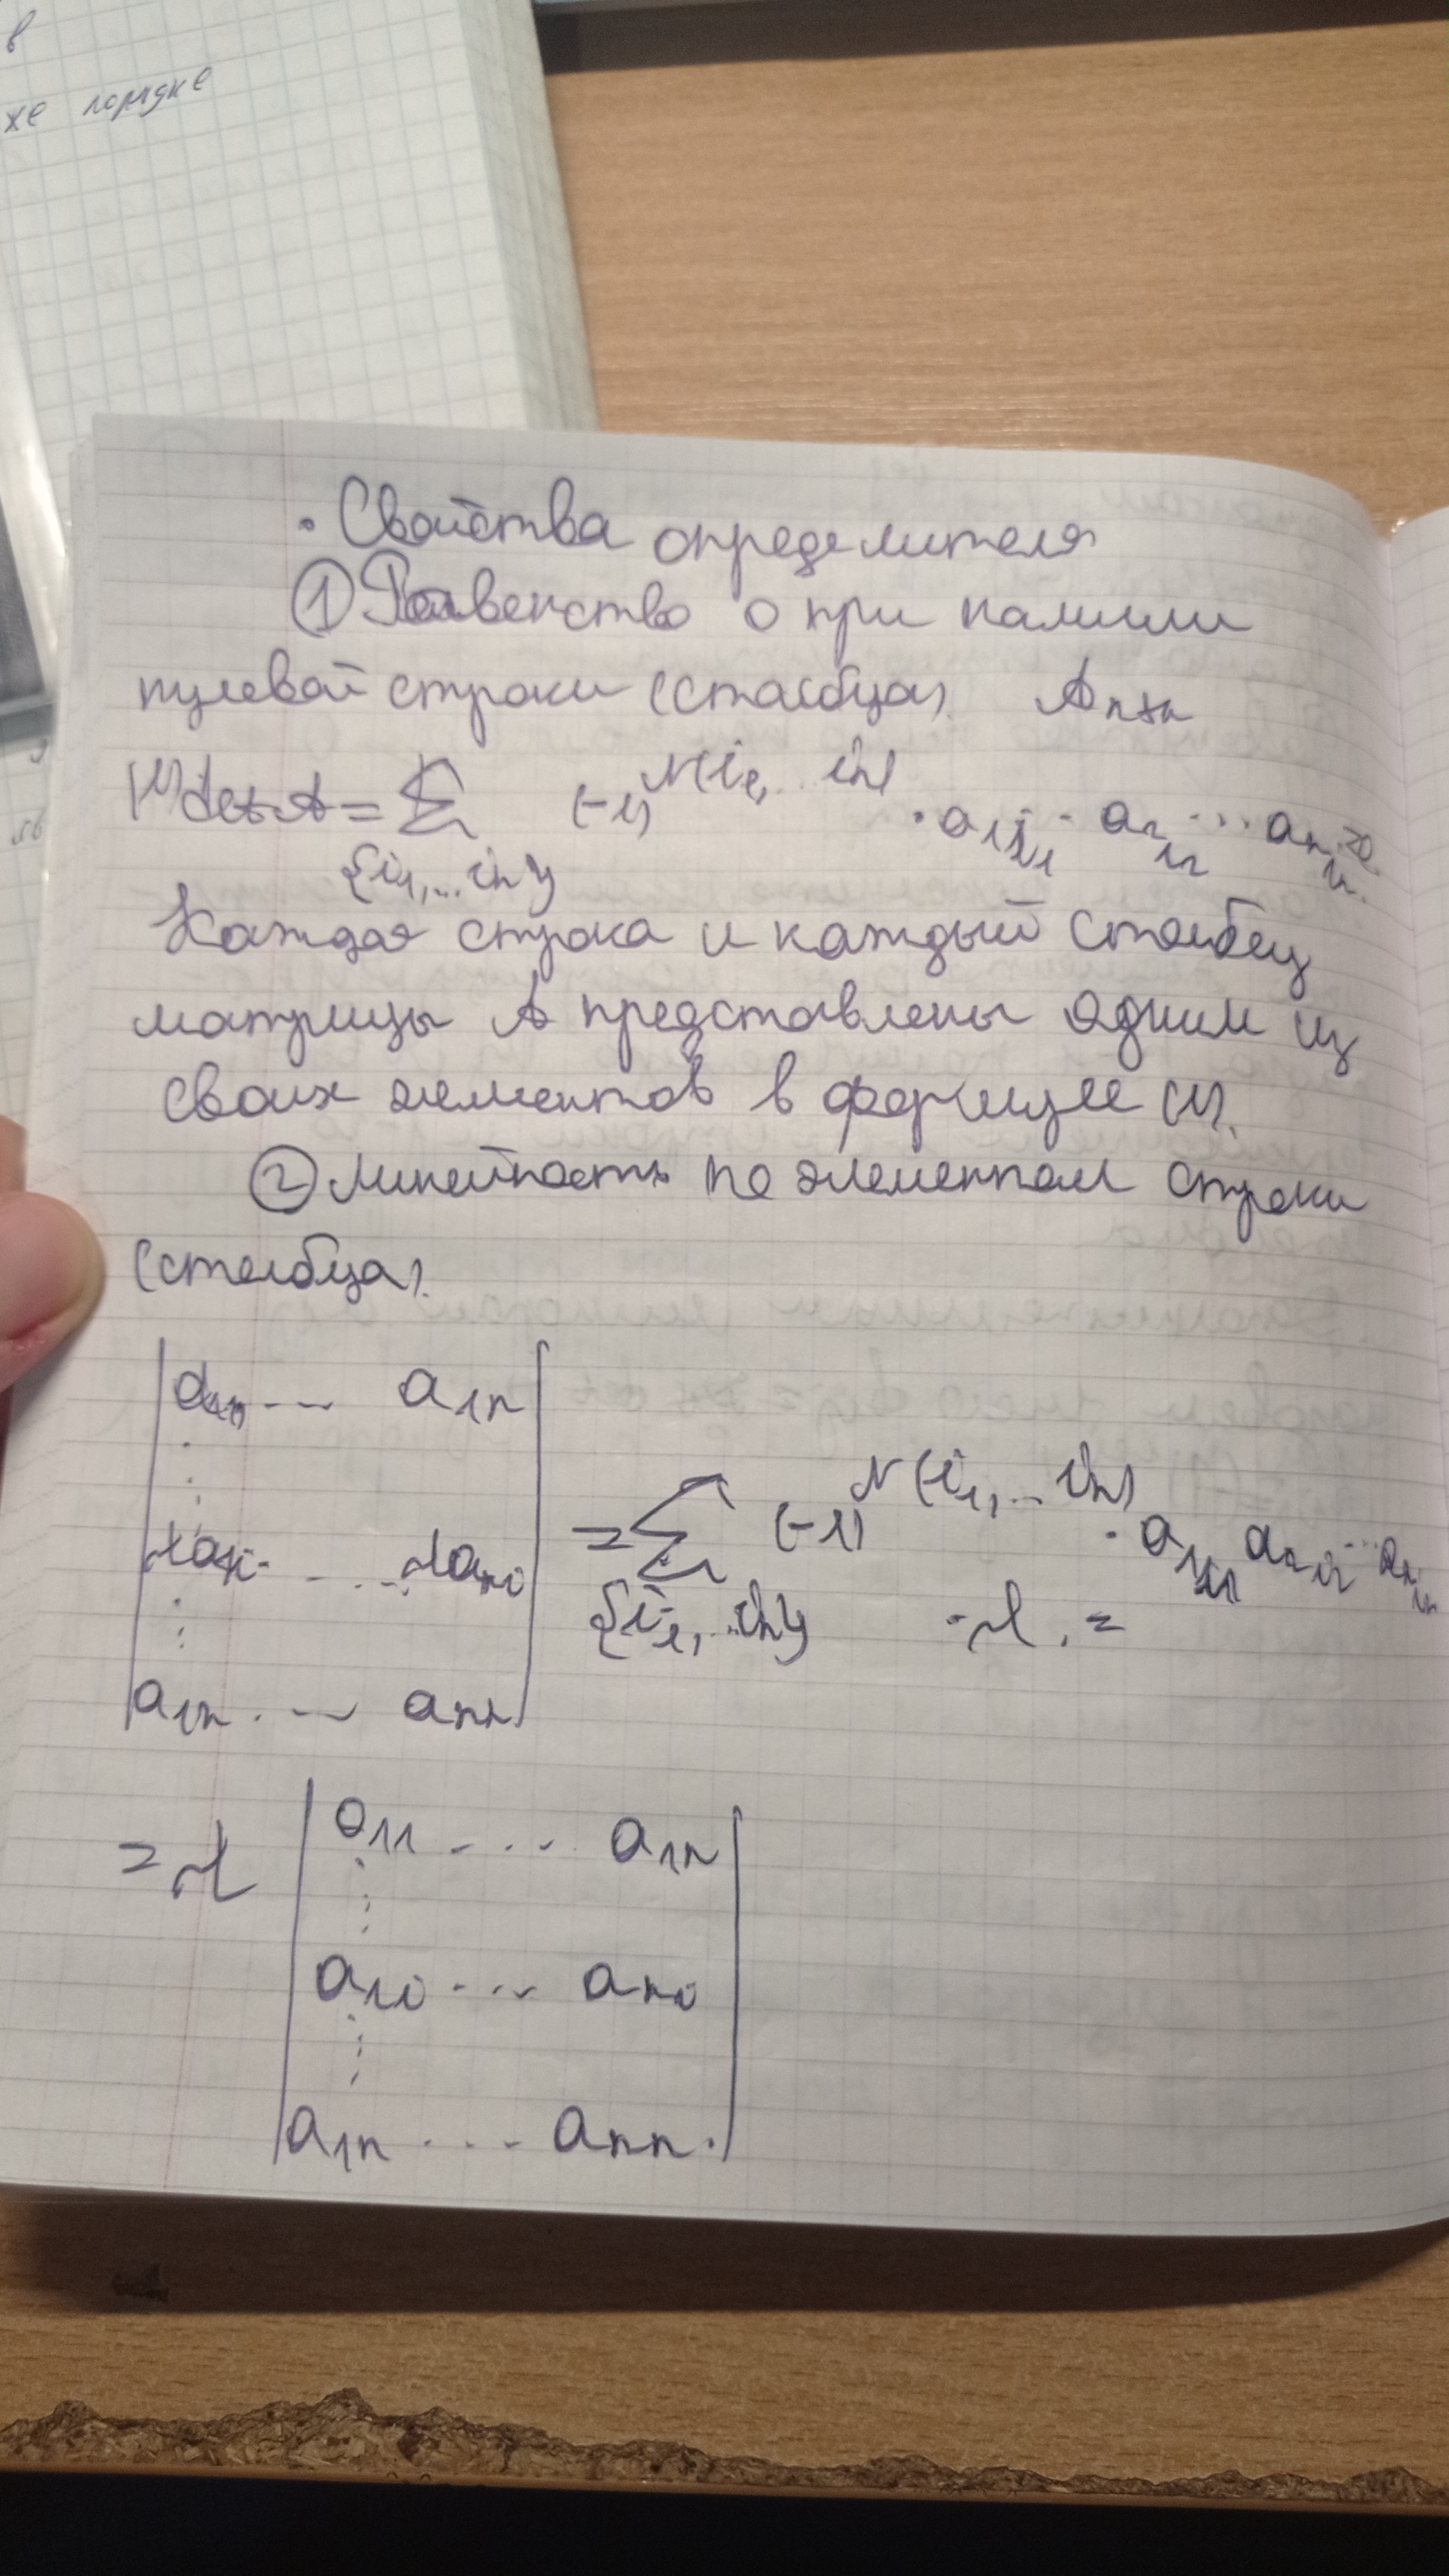 в
же порядке
• Свойства определителя
① Равенство 0 при наличии
нулевой строки (столбца). Aₙₓₙ
(*) det A = Σ (-1)^N(i₁,...iₙ) · a₁ᵢ₁ · a₂ᵢ₂ ... aₙᵢₙ = 0.
{i₁,...iₙ}
Каждая строка и каждый столбец
матрицы A представлены одним из
своих элементов в формуле (*).
② Линейность по элементам строки
(столбца).
| a₁₁ ... a₁ₙ |
⋮
| λa₁ᵢ ... λaₙᵢ | = Σ (-1)^N(i₁,...iₙ) · a₁ᵢ₁ a₂ᵢ₂ ... aₙᵢₙ
{i₁,...iₙ} · λ =
⋮
| a₁ₙ ... aₙₙ |
= λ | a₁₁ ... a₁ₙ |
⋮
| a₁ᵢ ... aₙᵢ |
⋮
| a₁ₙ ... aₙₙ. |